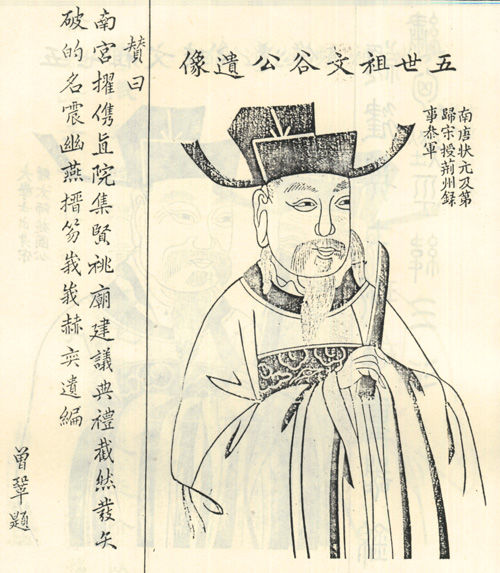 五世祖文谷公遺像
南唐狀元及第
歸宋授荊州錄
事叅軍
賛曰
南宮擢儁直院集賢祧廟建議典禮截然發矢
破的名震幽燕搢笏峩峩赫奕遺編
曾鞏題